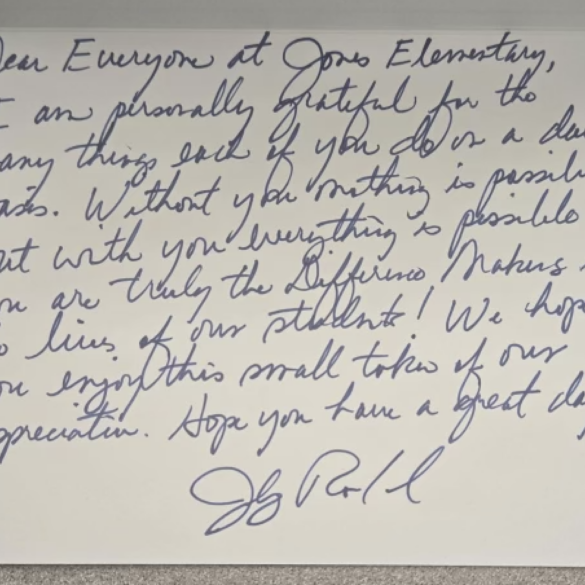 ear Everyone at Jones Elementary,
I am personally grateful for the
any things each of you do on a da
asis. Without you nothing is possibl
ut with you everything is possible
ou are truly the Difference Makers
lives of our students! We hop
ou enjoy this small token of our
ppreciation. Hope you have a great da